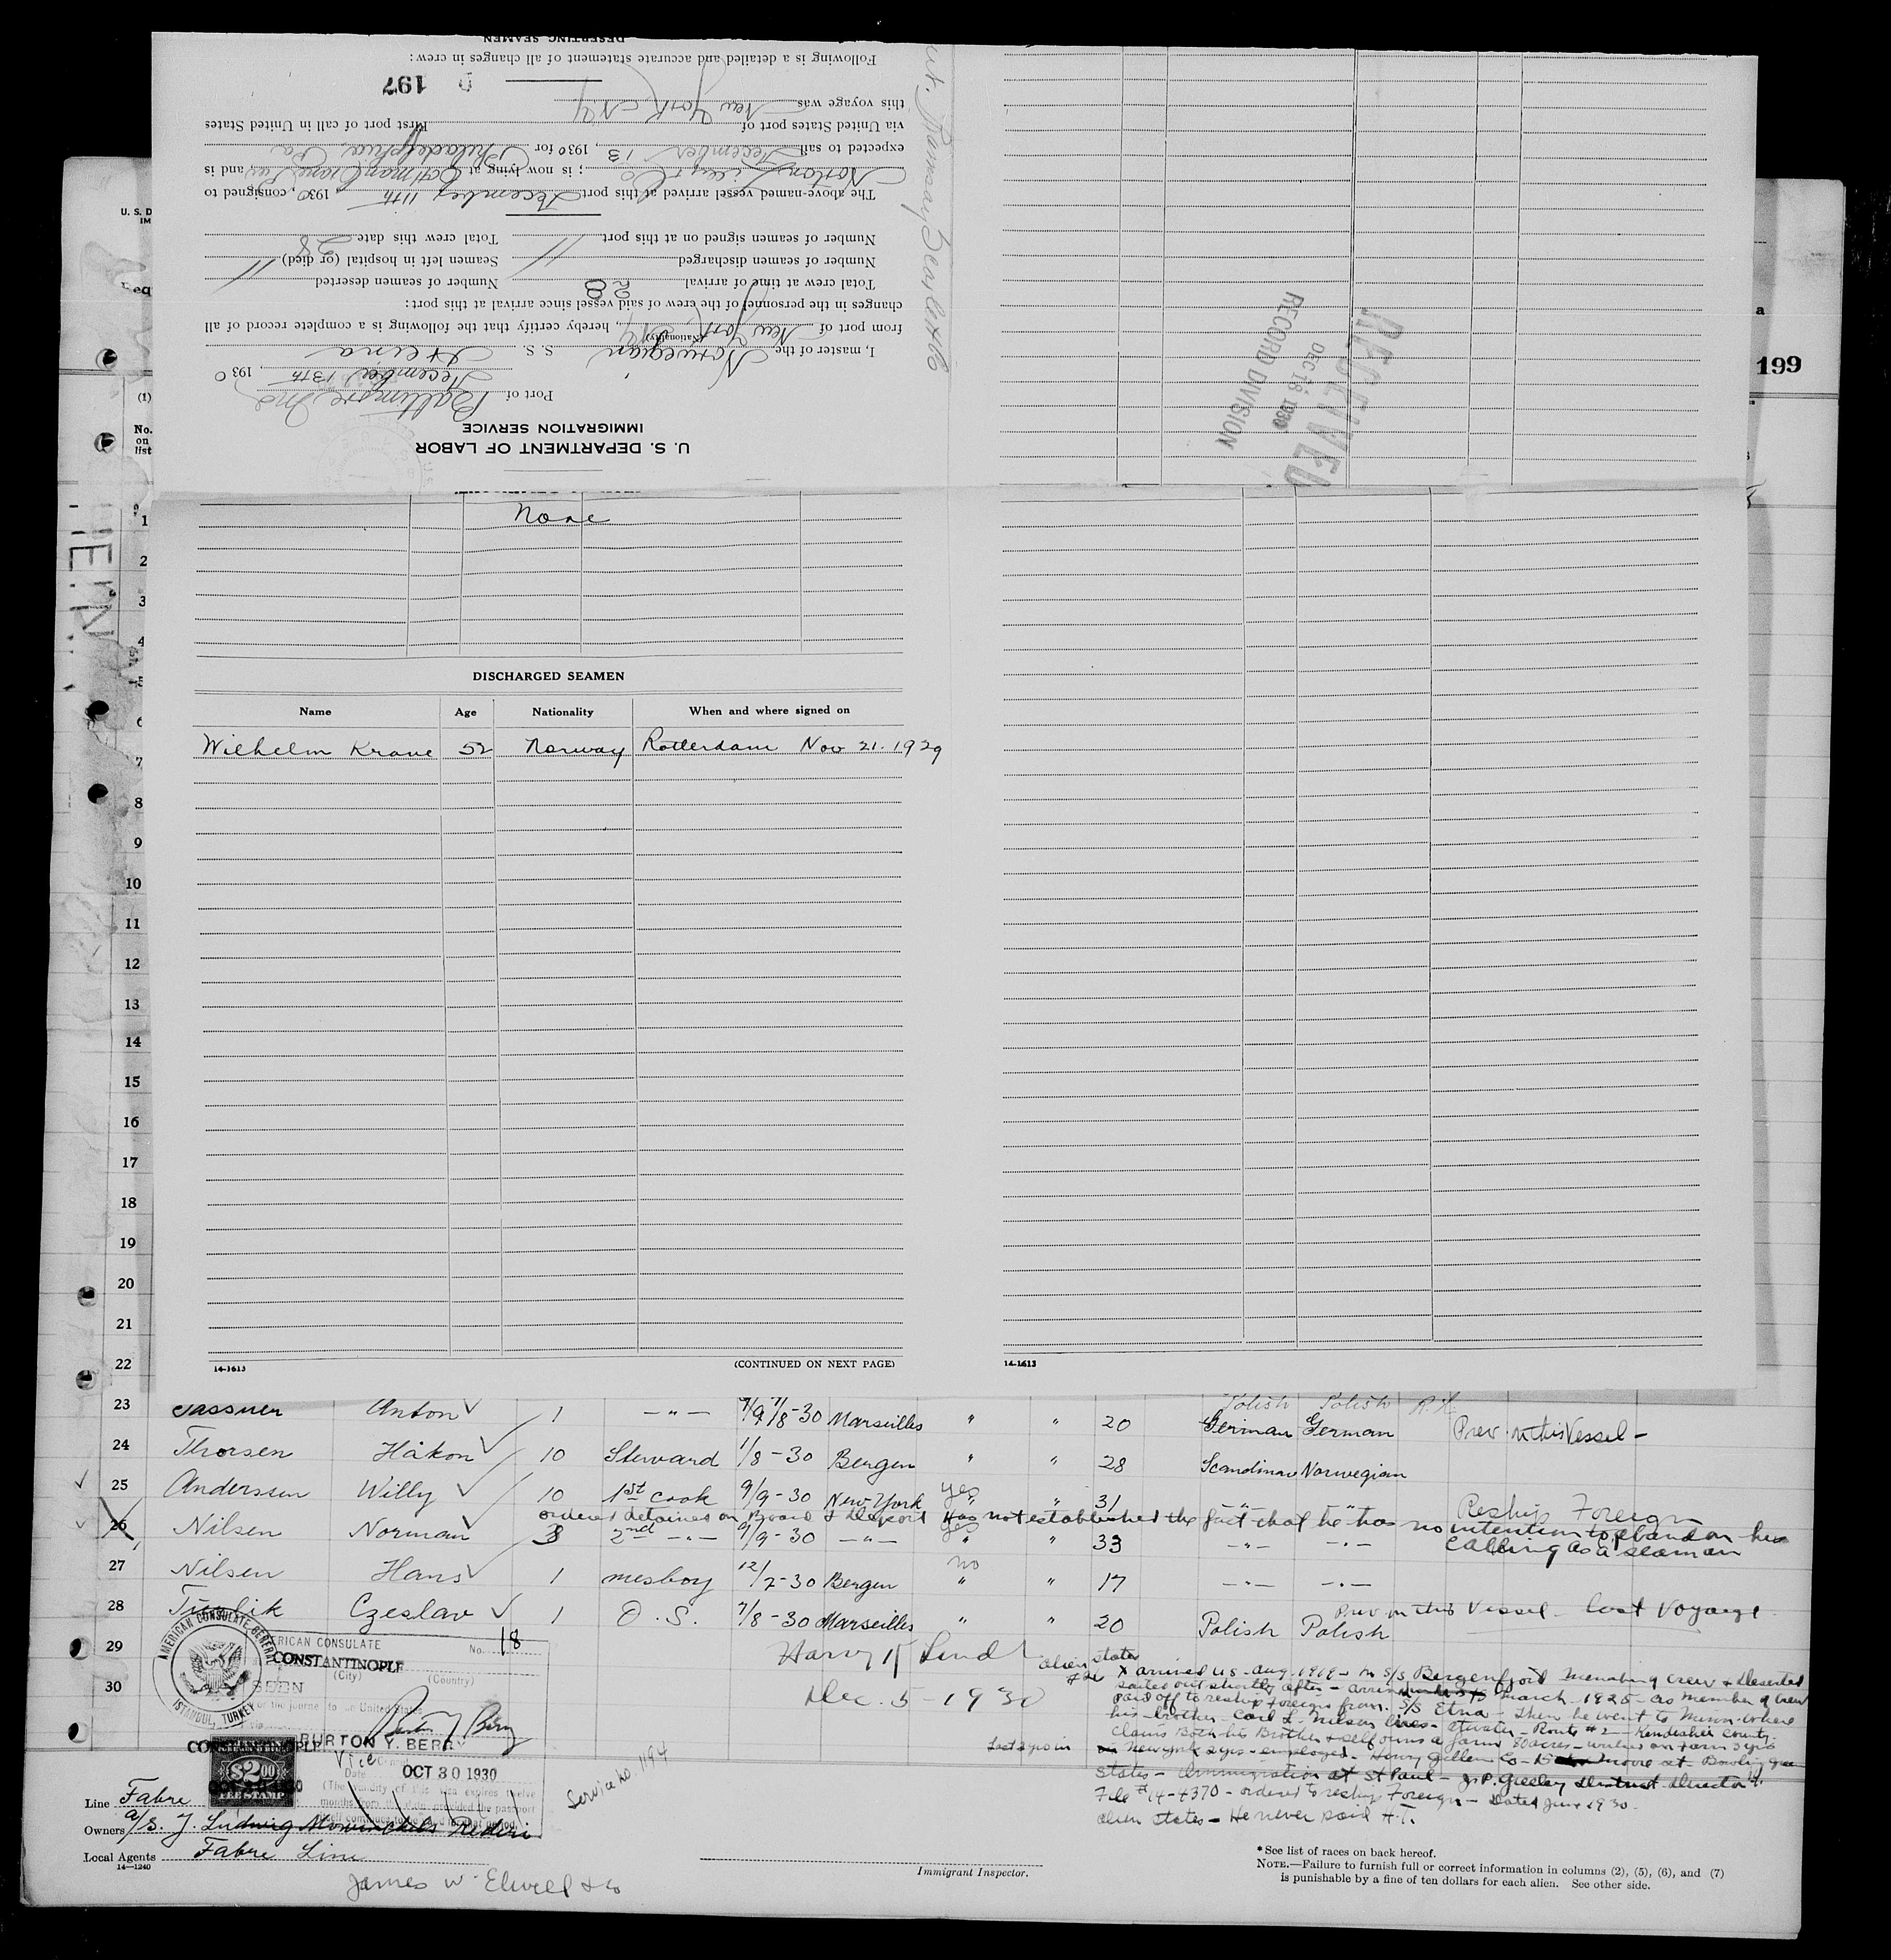 U. S. DEPARTMENT OF LABOR
IMMIGRATION SERVICE
Port of Baltimore Md
December 13th, 1930
I, master of the Norwegian S. S. Heina
(Nationality)
from port of New York, NY, hereby certify that the following is a complete record of all
changes in the personnel of the crew of said vessel since arrival at this port:
Total crew at time of arrival 28 Number of seamen deserted
Number of seamen discharged Seamen left in hospital (or died)
Number of seamen signed on at this port Total crew this date 28
The above-named vessel arrived at this port December 11th, 1930, consigned to
; is now lying at and is
expected to sail December 13, 1930 for Philadelphia, Pa
via United States port of First port of call in United States
this voyage was New York NY
D 197
Following is a detailed and accurate statement of all changes in crew:
DESERTING SEAMEN
RECEIVED
DEC 16 1930
RECORD DIVISION
199
None
DISCHARGED SEAMEN
Name Age Nationality When and where signed on
Wilhelm Krane 52 Norway Rotterdam Nov 21. 1929
14-1613 (CONTINUED ON NEXT PAGE) 14-1613
U. S. D
IM
(1)
No.
on
list
1
2
3
4
5
6
7
8
9
10
11
12
13
14
15
16
17
18
19
20
21
22
Polish Polish
23 Anton 1 —"— 7/8-30 Marseilles " " 20 German German Prev. in this Vessel -
24 Thorsen Håkon 10 Steward 1/8-30 Bergen " " 28 Scandinav Norwegian
25 Anderssen Willy 10 1st cook 9/9-30 New-York yes " 31 —"— —"— Reship Foreign
ordered detained on Board & Deport Has not established the fact that he has no intention to abandon his
calling as a seaman
26 Nilsen Norman 3 2nd —"— 9/9-30 —"— yes " 33 —"— —"—
27 Nilsen Hans 1 mesboy 12/7-30 Bergen no " 17 —"— —"—
Prev in this Vessel - last Voyage
28 Czeslav 1 O. S. 7/8-30 Marseilles " " 20 Polish Polish
29
30
Dec. 5-1930
AMERICAN CONSULATE GENERAL
ISTANBUL, TURKEY
AMERICAN CONSULATE No. 18
CONSTANTINOPLE
(City) (Country)
SEEN
BURTON Y. BERRY
Vice
Date OCT 30 1930
$2.00
FEE STAMP
Service No. 1194
alien states
X arrived U.S. Aug. 1919 - on S/S Bergensfjord member of crew & Deserted
sailed out shortly after - March 1925 - as member of crew
paid off to reship foreign from S/S Etna - Then he went to Minn. where
his brother Carl L. Nilsen lives - Atwater - Route #2 - Kandiyohi County
Claims Both his Brother & self owns a farm 80 acres - worked on farm 3 yrs
New York 2 yrs - employed - Henry Gillen Co
States - Immigration at St Paul - District Director
File #14-4370 - ordered to reship Foreign - Dated June 1930 -
alien states - He never paid H.T.
Line Fabre
Owners A/S. J. Ludwig Mowinckels Rederi
Local Agents Fabre Line
14—1240
James W Elwell & Co
Immigrant Inspector.
* See list of races on back hereof.
NOTE.—Failure to furnish full or correct information in columns (2), (5), (6), and (7)
is punishable by a fine of ten dollars for each alien. See other side.